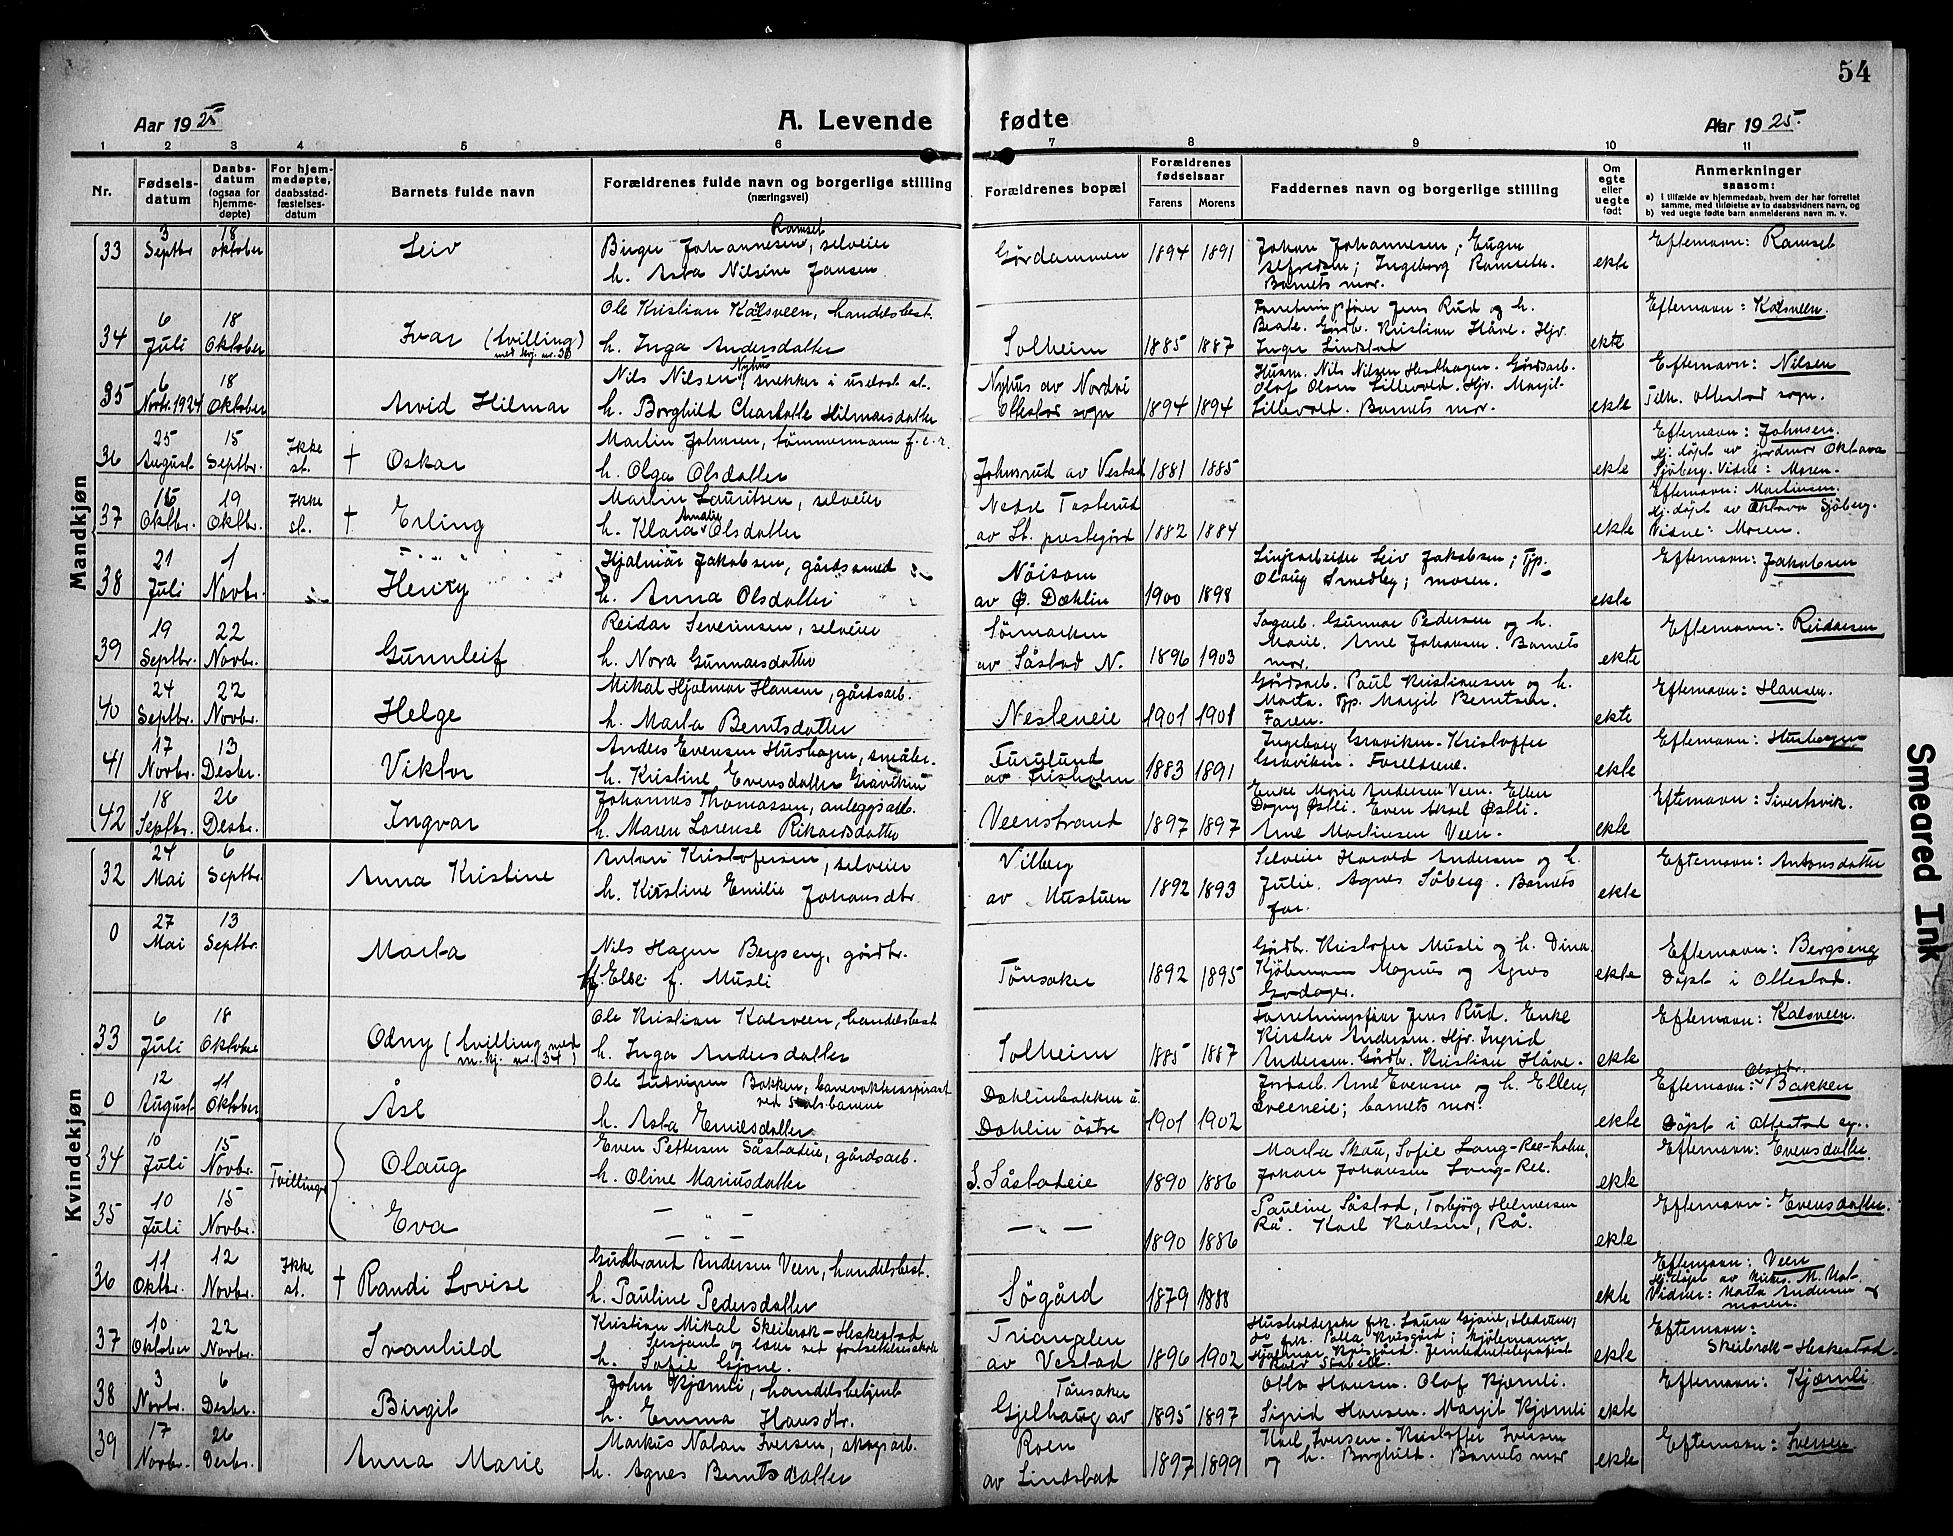 54
Aar 1925
A. Levende fødte
Aar 1925.
1 2 3 4 5 6 7 8 9 10 11
Nr.
Fødsels-
datum
Daabs-
datum
(ogsaa for
hjemme-
døpte)
For hjem-
medøpte,
daabsstad-
fæstelses-
datum
Barnets fulde navn
Forældrenes fulde navn og borgerlige stilling
(næringsvei)
Forældrenes bopæl
Forældrenes
fødselsaar
Farens
Morens
Faddernes navn og borgerlige stilling
Om
egte
eller
uegte
født
Anmerkninger
saasom:
a) i tilfælde av hjemmedaab, hvem der har forrettet
samme, med tilføielse av to daabsvidners navn, og
b) ved uegte fødte barn anmelderens navn m. v.
Mandkjøn
33
3 Septbr
18 oktober
Leiv
Birger Johannesen Ramset, selveier
h. Asta Nilsine Jansen
Gørdammen
1894 1891
Johan Johannesen; Eugen
Alfredsen; Ingeborg Ramseth.
Barnets mor.
ekte
Efternavn: Ramset
34
6 Juli
18 Oktober
Ivar (tvilling)
Ole Kristian Kalsveen, handelsbest.
h. Inga Andersdatter
Solheim
1885 1887
Jens Rud og h.
Beate. Gårdb. Kristian Håve. Hjr.
Inger Lindstad
ekte
Efternavn: Kalsveen.
35
6 Novbr. 1924
18 Oktober
Arvid Hilmar
Nils Nilsen Nyhus, snekker
h. Borghild Charlotte Hilmarsdatter
Nyhus av Nordvi
Ottestad sogn
1894 1894
Husm. Nils Nilsen Hesthagen. Gårdsarb.
Olaf Olsen Lillevold. Hjr. Margit
Lillevold. Barnets mor.
ekte
Efternavn: Nilsen
Tilh. Ottestad sogn.
36
25 August
15 Septbr.
Ikke
st.
† Oskar
Martin Johnsen, tømmermann
h. Olga Olsdatter
Johnsrud av Vestad
1881 1885
ekte
Efternavn: Johnsen.
Hj. døpt av jordmor Oktava
Sjøberg. Vidne: Moren.
37
16 Oktbr.
19 Oktbr.
Ikke
st.
† Erling
Martin Lauritsen, selveier
h. Klara Amalie Olsdatter
Nedre Tasterud
av St. prestegård
1882 1884
ekte
Efternavn: Martinsen.
Hj. døpt av Oktava Sjøberg.
Vidne: Moren.
38
21 Juli
1 Novbr.
Henry
Hjalmar Jakobsen, gårdssmed
h. Anna Olsdatter
Nøisom
av Ø. Dæhlin
1900 1898
Linjearbeider Leiv Jakobsen; Tjp.
Olaug Smedby; moren.
ekte
Efternavn: Jakobsen
39
19 Septbr.
22 Novbr.
Gunnleif
Reidar Severinsen, selveier
h. Nora Gunnarsdatter
Sørmarken
av Såstad N.
1896 1903
Sagarb. Gunnar Pedersen og h.
Marie. Arne Johansen. Barnets
mor.
ekte
Efternavn: Reidarsen
40
24 Septbr.
22 Novbr.
Helge
Mikal Hjalmar Hansen, gårdsarb.
h. Marta Berntsdatter
Nesteneie
1901 1901
Gårdsarb. Paul Kristiansen og h.
Marta. Tjp. Margit Berntsen.
Faren.
ekte
Efternavn: Hansen.
41
17 Novbr.
13 Desbr.
Viktor
Anders Evensen Hushagen, småbr.
h. Kristine Evensdatter Graviken
Furulund
av Frisholm
1883 1891
Ingeborg Graviken. Kristoffer
Graviken. Foreldrene.
ekte
Efternavn: Hushagen
42
18 Septbr.
26 Desbr.
Ingvar
Johannes Thomassen, anleggsarb.
h. Maren Lorense Rikardsdatter
Veenstrand
1897 1897
Enke Marie Andersen Veen. Ellen
Dagny Østli. Even Aksel Østli.
Arne Martinsen Veen.
ekte
Efternavn: Sivertsvik.
Kvindekjøn
32
24 Mai
6 Septbr.
Anna Kristine
Anton Kristofersen, selveier
h. Kirstine Emilie Johansdtr.
Vilberg
av Hustuen
1892 1893
Selveier Harald Andersen og h.
Julie. Agnes Søberg. Barnets
far.
ekte
Efternavn: Antonsdatter
0
27 Mai
13 Septbr.
Marta
Nils Hagen Bergseng, gårdbr.
h. Else f. Musli
Tønsaker
1892 1895
Gårdbr. Kristofer Musli og h. Dina
Kjøbmann Magnus og Agnes
Godager.
ekte
Efternavn: Bergseng
Døpt i Ottestad.
33
6 Juli
18 Oktober
Odny (tvilling med
m.kj. nr. 34)
Ole Kristian Kalsveen, handelsbest
h. Inga Andersdatter
Solheim
1885 1887
Forretningsfører Jens Rud. Enke
Kirsten Andersen. Hjr. Ingrid
Andersen. Gårdbr. Kristian Håve.
ekte
Efternavn: Kalsveen.
0
12 August
11 Oktober
Åse
Ole Ludvigsen Bakken, banevokteraspirant
ved Statsbanene
h. Asta Emilsdatter
Dæhlinbakken u.
Dæhlin østre
1901 1902
Jordarb. Arne Evensen og h. Ellen,
Sveeneie; barnets mor.
ekte
Efternavn: Olsdtr. Bakken
Døpt i Ottestad sg..
34
10 Juli
15 Novbr.
Tvillinger
Olaug
Even Pettersen Såstadeie, gårdsarb.
h. Oline Mariusdatter
S. Såstadeie
1890 1886
Marta Skau, Sofie Lang-Ree-
Johan Johansen Lang-Ree.
ekte
Efternavn: Evensdatter.
35
10 Juli
15 Novbr.
Eva
— " —
— —
1890 1886
Pauline Såstad, Torbjørg Helmersen
Rå. Karl Karlsen, Rå.
ekte
Efternavn: Evensdatter.
36
11 Oktbr.
12 Novbr.
Ikke
st.
† Randi Lovise
Gudbrand Andersen Veen, handelsbest.
h. Pauline Pedersdatter
Søgård
1879 1888
ekte
Efternavn: Veen
Vidner: Marta Andersen og
moren.
37
10 Oktober
22 Novbr.
Svanhild
Kristian Mikal Skeibrok-Heskestad
Sersjant og lærer ved fortsettelsesskole
h. Sofie Gjone.
Trianglen
av Vestad
1896 1902
Husholderske frk. Laura Gjone, Hedrum;
ekte
Efternavn:
Skeibrok-Heskestad.
38
3 Novbr.
6 Desbr.
Birgit
John Kjærnli, handelsbetjent
h. Emma Hansdtr.
Tønsaker
Gjelhaug av
1895 1897
Otto Hansen. Olaf Kjærnli.
Sigrid Hansen. Margit Kjærnli
ekte
Efternavn: Kjærnli
39
17 Novbr.
26 Desbr.
Anna Marie
Markus Natan Iversen, skogsarb.
h. Agnes Berntsdatter
Roen
av Lindstad
1897 1899
Karl Iversen. Kristoffer Iversen
og h. Borghild. Barnets mor
ekte
Efternavn: Iversen.
Smeared Ink